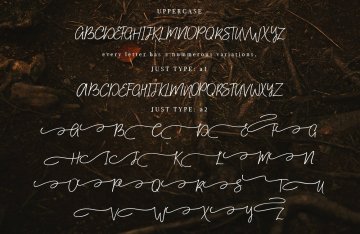 UPPERCASE
ABCDEFGHIJKLMNOPQRSTUVWXYZ
every letter has s nummerous variations,
JUST TYPE: a1
ABCDEFGHIJKLMNOPQRSTUVWXYZ
JUST TYPE: a2
A B C D E F G
H I J K L M N
O P Q R S T U
V W X Y Z